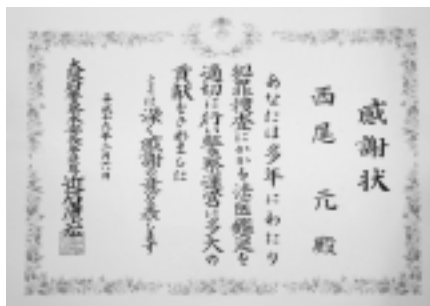 感謝状
西尾 元 殿
あなたは多年にわたり
犯罪捜査にかかる法医鑑定を
適切に行い警察運営に多大の
貢献をされました
ここに深く感謝の意を表します